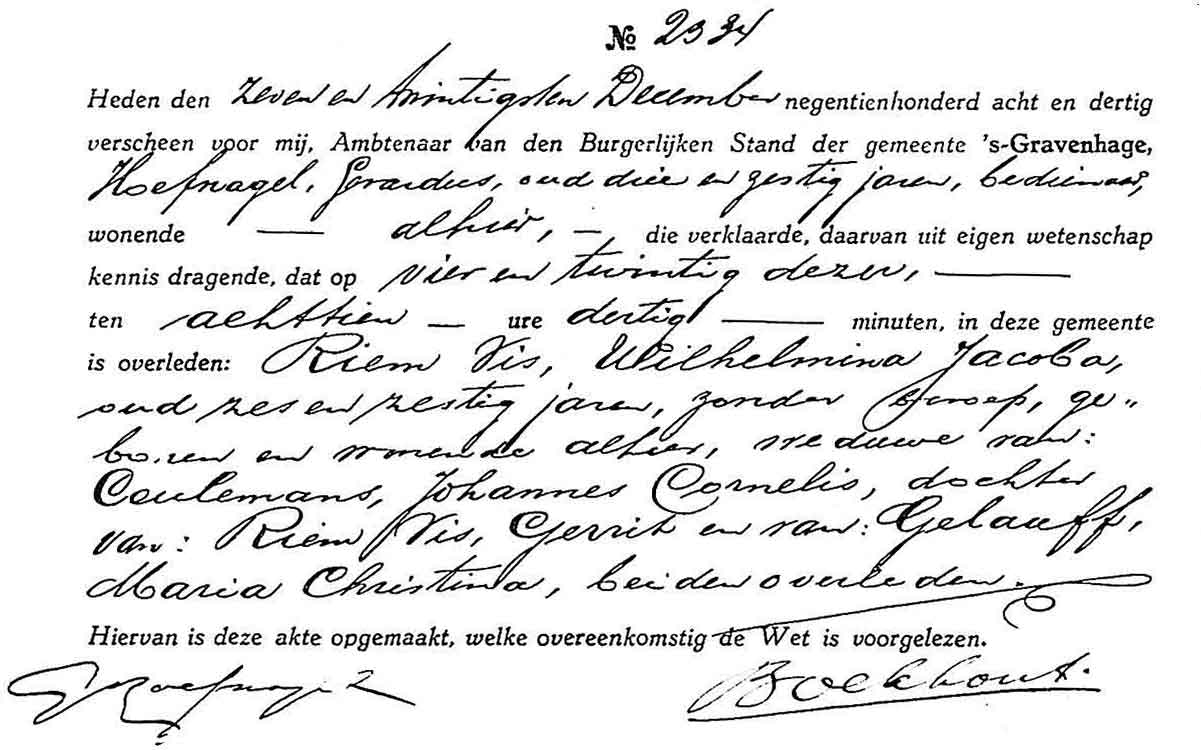 No 2334
Heden den zeven en twintigsten December negentienhonderd acht en dertig
verscheen voor mij, Ambtenaar van den Burgerlijken Stand der gemeente 's-Gravenhage,
Hoefnagel, Gerardus, oud drie en zestig jaren, bedienaar,
wonende — alhier, — die verklaarde, daarvan uit eigen wetenschap
kennis dragende, dat op vier en twintig dezer, —
ten achttien — ure dertig — minuten, in deze gemeente
is overleden: Riem Vis, Wilhelmina Jacoba,
oud zes en zestig jaren, zonder beroep, ge-
boren en wonende alhier, weduwe van:
Ceulemans, Johannes Cornelis, dochter
van: Riem Vis, Gerrit en van: Gelauff,
Maria Christina, beiden overleden.
Hiervan is deze akte opgemaakt, welke overeenkomstig de Wet is voorgelezen.
G Hoefnagel Boekhout.